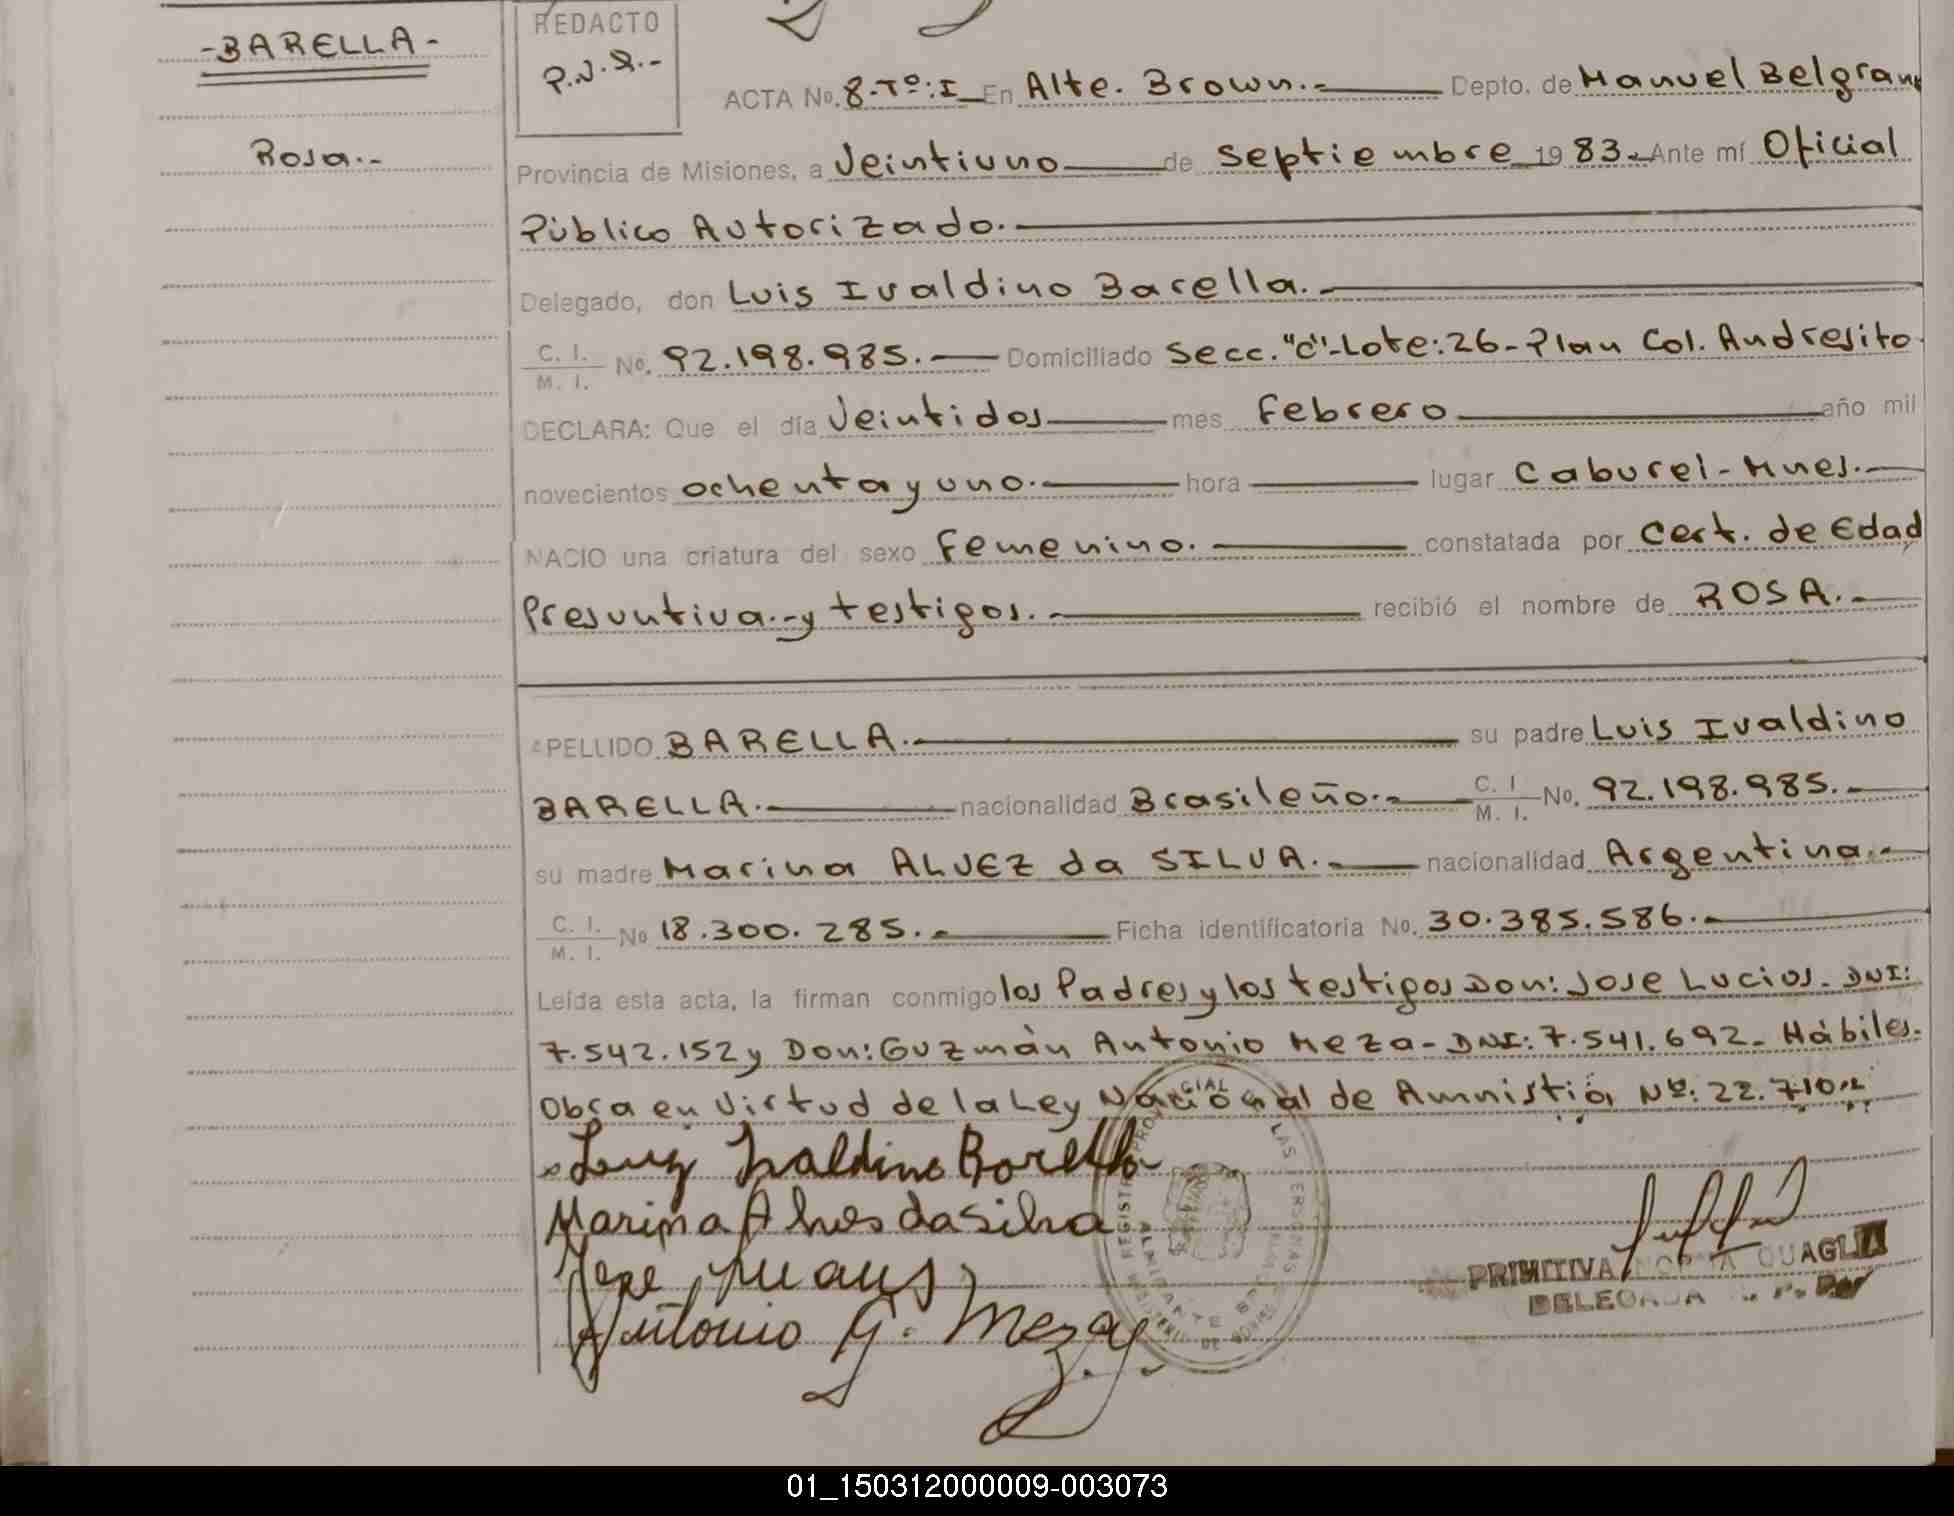 -BARELLA-
Rosa.-
REDACTO
P.N.Q.-
ACTA No. 8-Tº:I En Alte. Brown.- Depto. de Manuel Belgrano
Provincia de Misiones, a Veintiuno de Septiembre 19 83.- Ante mí Oficial
Público Autorizado.-
Delegado, don Luis Ivaldino Barella.-
C. I. / M. I. No. 92.198.985.- Domiciliado Secc."C"-Lote:26-Plan Col. Andresito
DECLARA: Que el día Veintidos mes Febrero año mil
novecientos ochenta y uno.- hora lugar Caburei-Mnes.-
NACIO una criatura del sexo Femenino.- constatada por Cert. de Edad
Presuntiva.-y testigos.- recibió el nombre de ROSA.-
APELLIDO BARELLA.- su padre Luis Ivaldino
BARELLA.- nacionalidad Brasileño.- C. I / M. I. No. 92.198.985.-
su madre Marina ALVEZ da SILVA.- nacionalidad Argentina.-
C. I. / M. I. No 18.300.285.- Ficha identificatoria No. 30.385.586.-
Leída esta acta, la firman conmigo los Padres y los testigos Don: Jose Lucios.- DNI:
7.542.152 y Don: Guzmán Antonio Meza- DNI: 7.541.692- Hábiles.
Obra en Virtud de la Ley Nacional de Amnistia, Nº: 22.710.-
Luiz Ivaldino Barella
Marina Alves da Silva
Antonio G. Meza
PRIMITIVA NORMA QUAGLIA
DELEGADA
01_150312000009-003073